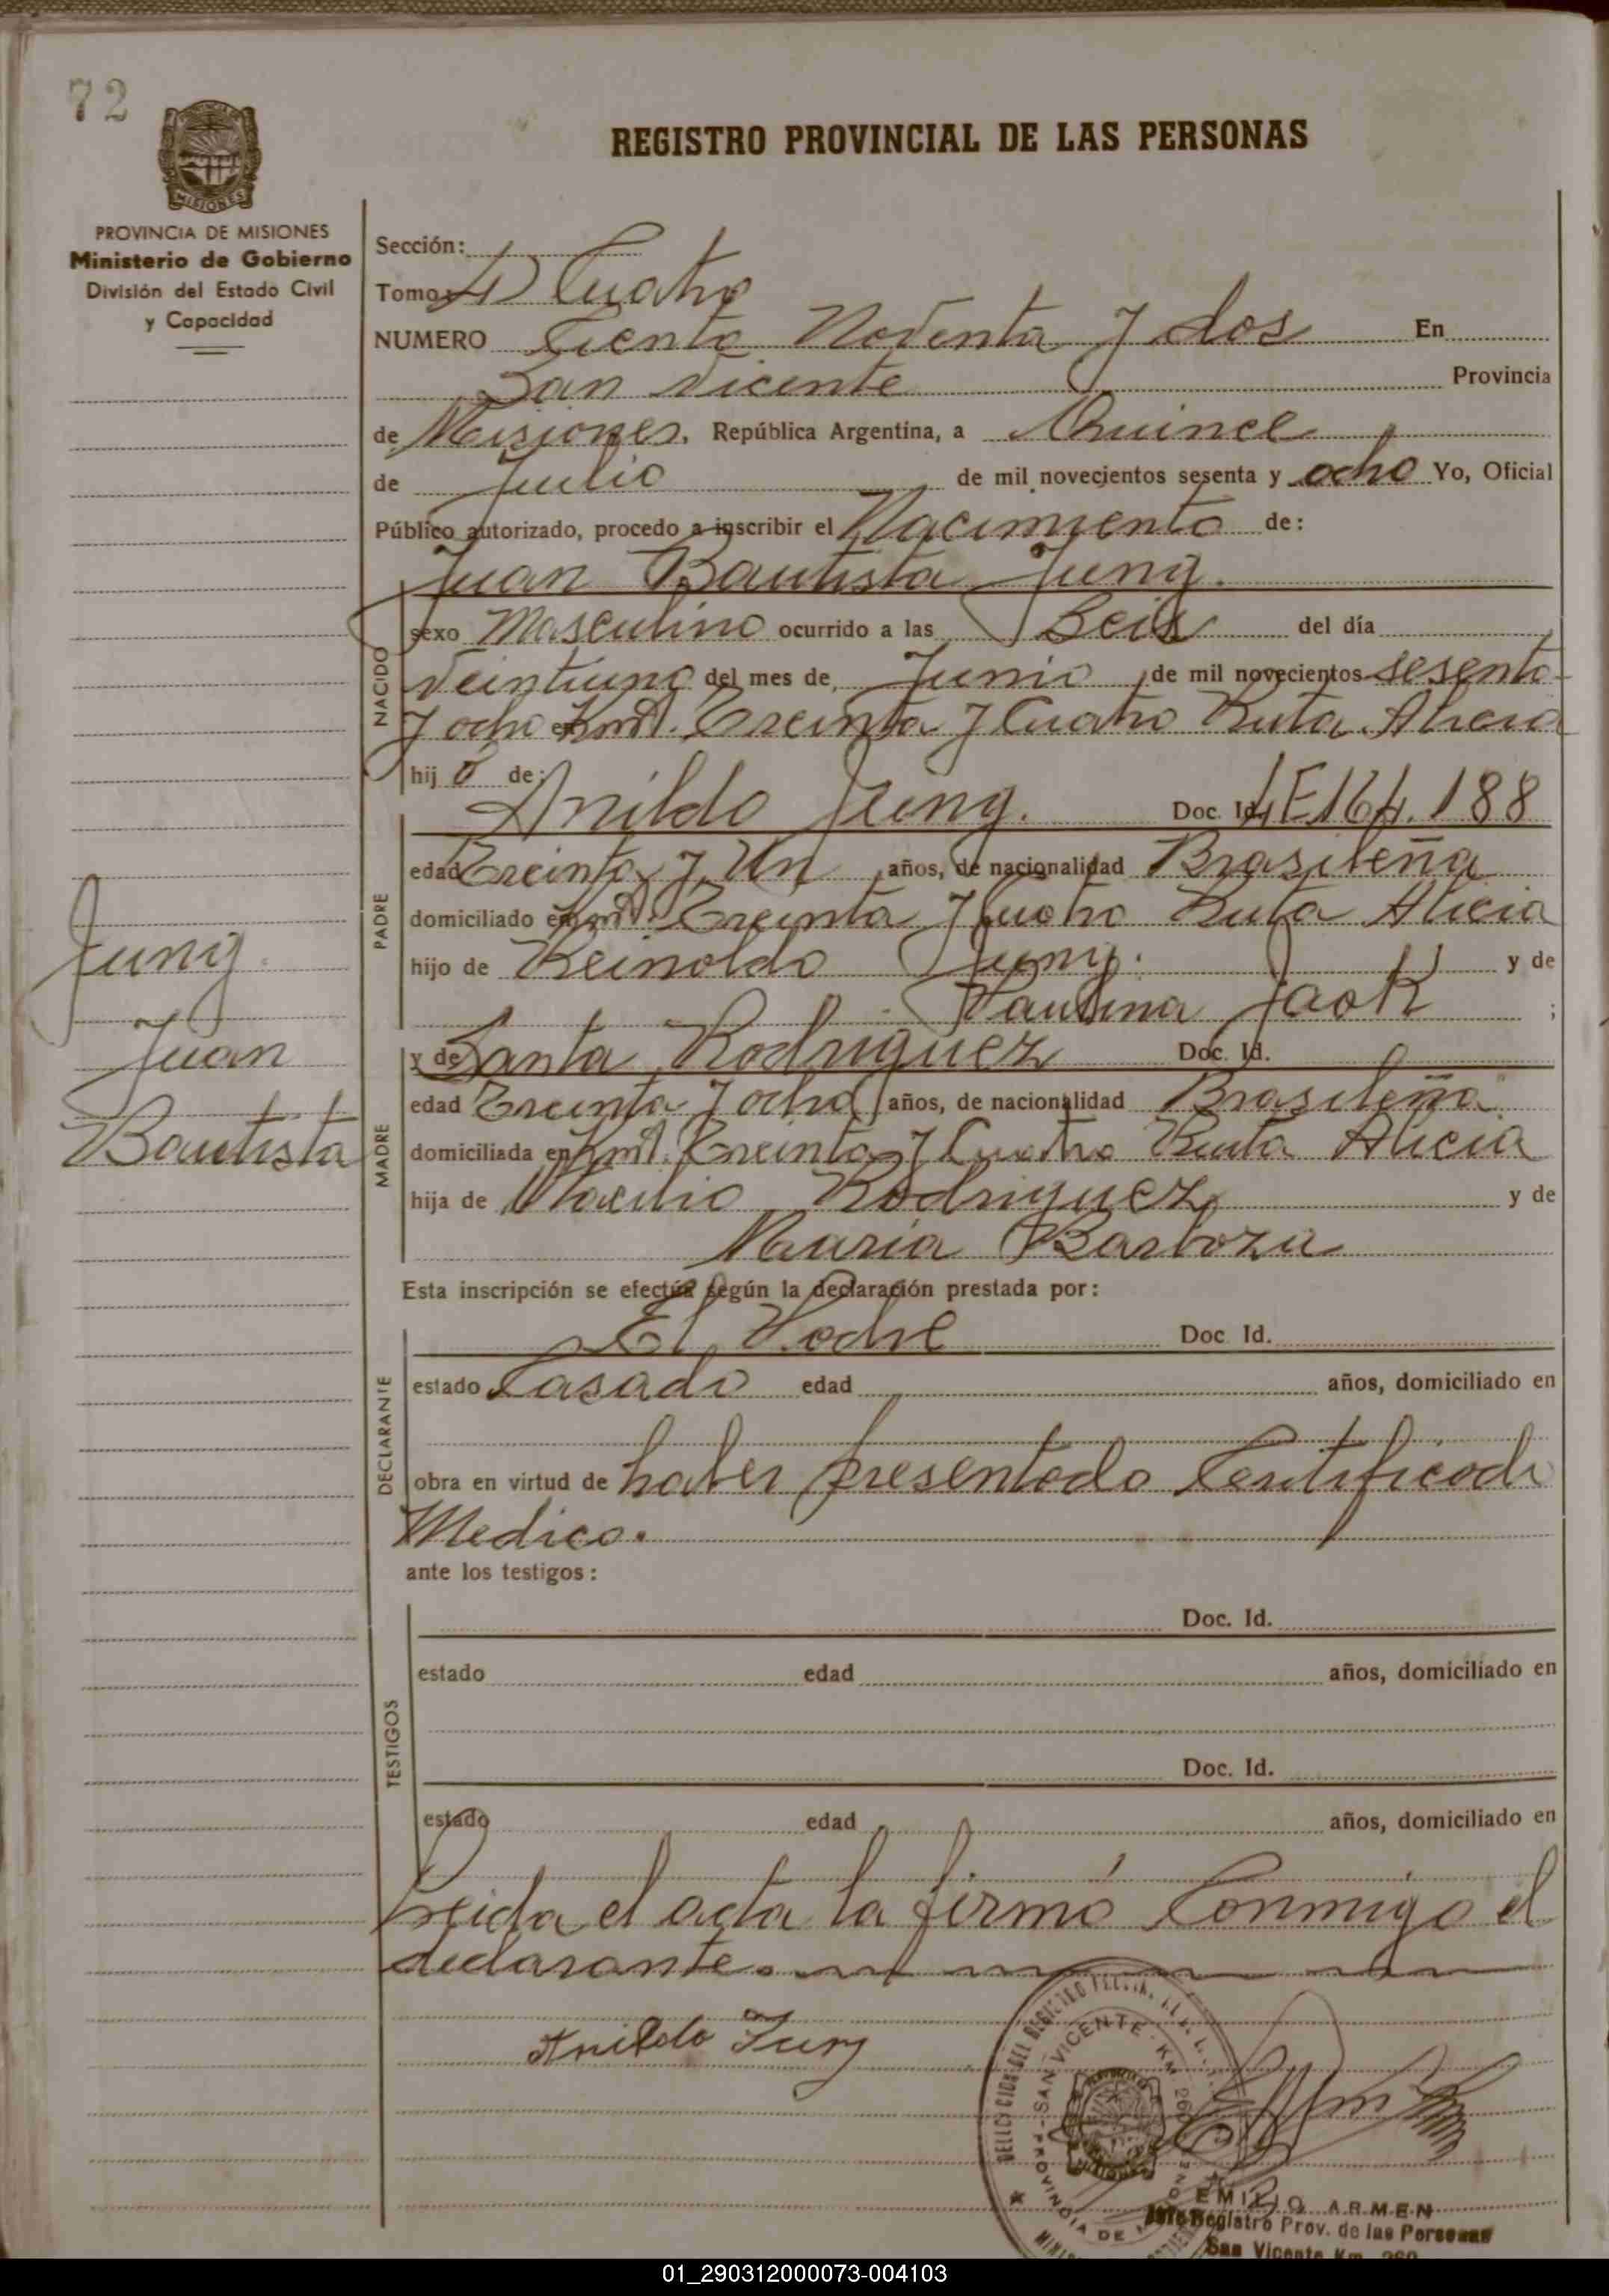 72
REGISTRO PROVINCIAL DE LAS PERSONAS
MISIONES
PROVINCIA DE MISIONES
Ministerio de Gobierno
División del Estado Civil
y Capacidad
Sección:
Tomo: 4 Cuatro
NUMERO Ciento Noventa y dos En
San Vicente Provincia
de Misiones. República Argentina, a Quince
de Julio de mil novecientos sesenta y ocho Yo, Oficial
Público autorizado, procedo a inscribir el Nacimiento de:
Juan Bautista Jung.
NACIDO
sexo Masculino ocurrido a las Seis del día
Veintiuno del mes de Junio de mil novecientos sesenta
y ocho en Kmt. Treinta y Cuatro Ruta Alicia
hij o de:
Anildo Jung. Doc. Id. 164.188
PADRE
edad Treinta y Un años, de nacionalidad Brasileña
domiciliado en Kmt. Treinta y Cuatro Ruta Alicia
hijo de Reinoldo Jung. y de
Paulina ;
Jung.
Juan
Bautista
MADRE
y de Santa Rodriguez Doc. Id.
edad Treinta y ocho años, de nacionalidad Brasileña
domiciliada en Kmt. Treinta y Cuatro Ruta Alicia
hija de Rodriguez y de
Maria Barboza
Esta inscripción se efectúa según la declaración prestada por:
DECLARANTE
El Padre Doc. Id.
estado Casado edad años, domiciliado en
obra en virtud de haber presentado Certificado
Medico.
ante los testigos:
TESTIGOS
Doc. Id.
estado edad años, domiciliado en
Doc. Id.
estado edad años, domiciliado en
Leida el acta la firmó Conmigo el
declarante.
Anildo Jung
SAN VICENTE - KM 260
PROVINCIA DE
EMILIO ARMEN
Registro Prov. de las Personas
San Vicente Km. 260
01_290312000073-004103